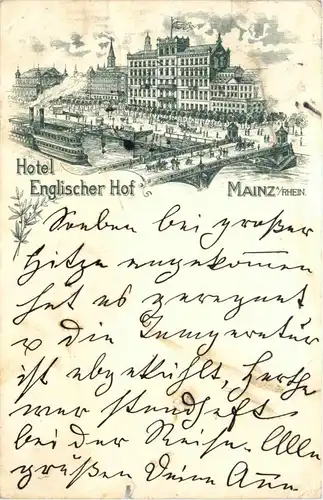 Hotel
Englischer Hof
MAINZ a/RHEIN.
Soeben bei großer
Hitze angekom̅en
hat es geregnet
u die Temperatur
ist abgekühlt, Herthe
war standhaft
bei der Reise. Alle
grüßen Deine Anna